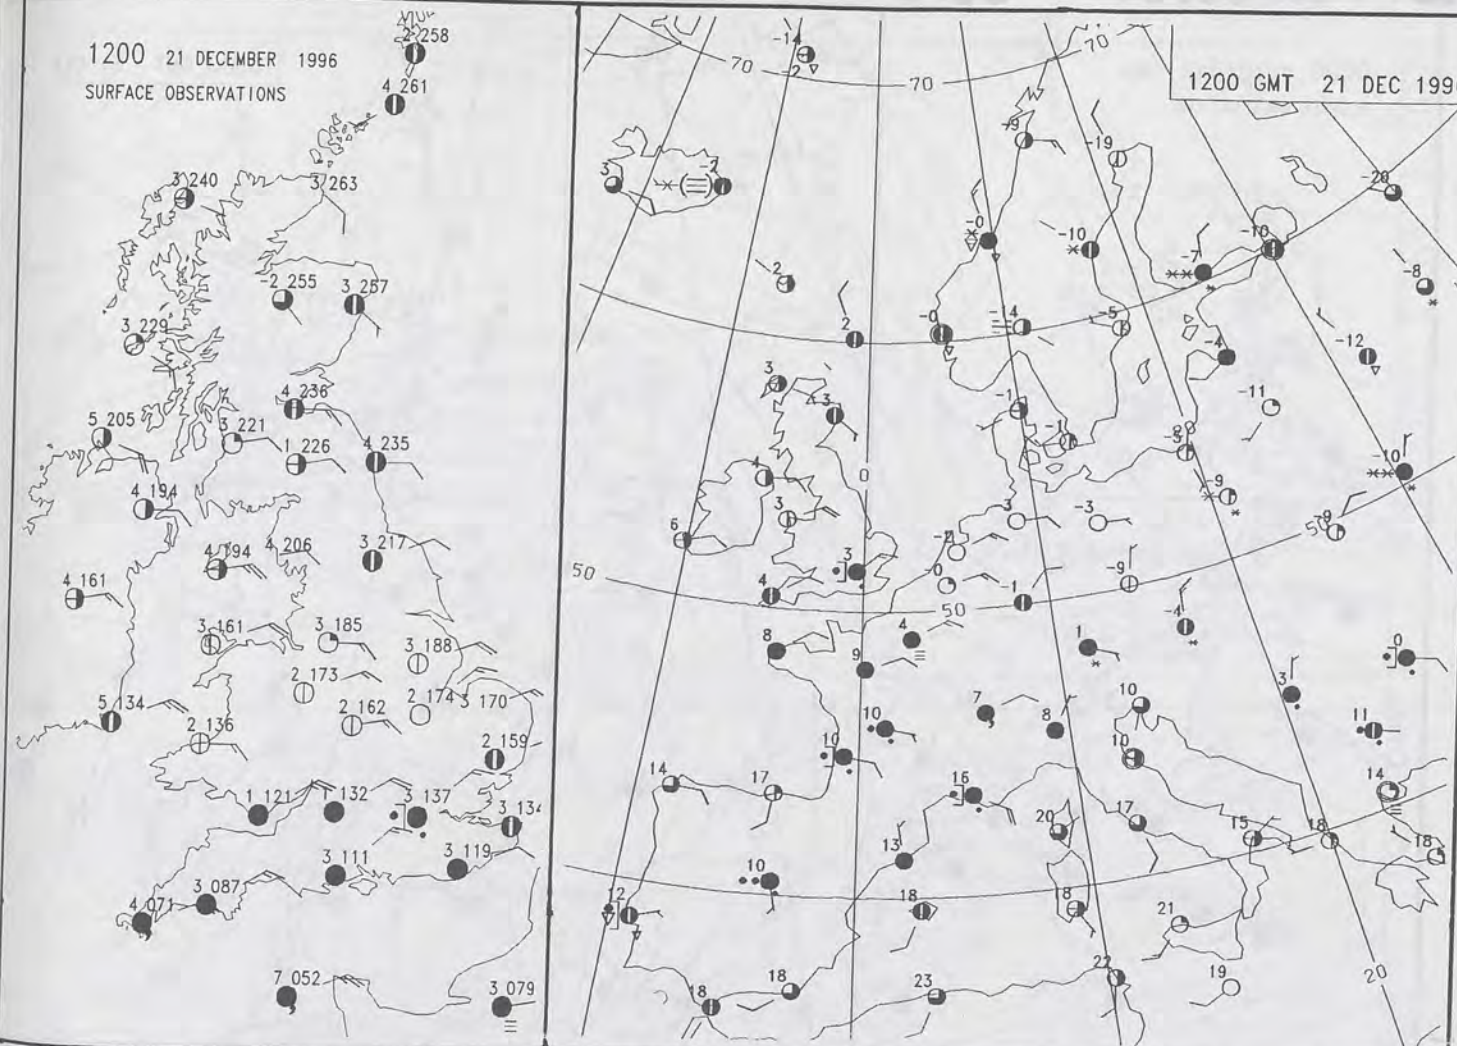 1200 21 DECEMBER 1996
SURFACE OBSERVATIONS
2 258
4 261
3 240
3 263
-2 255
3 257
3 229
4 236
5 205
3 221
1 226
4 235
4 194
4 194
4 206
3 217
4 161
3 161
3 185
3 188
2 173
2 174
3 170
5 134
2 136
2 162
2 159
1 121
1 132
3 137
3 134
3 111
3 119
3 087
4 071
7 052
3 079
1200 GMT 21 DEC 199
-14
-2
70
70
70
-9
-19
3
-2
-20
-0
-10
-7
-10
-8
2
2
-0
-14
-5
-4
-12
3
3
-1
-1
-11
-5
-10
4
0
-9
6
3
-3
-3
-9
50
50
50
4
3
-2
-0
-1
-9
-4
8
9
4
1
0
10
10
7
8
10
10
3
11
14
17
16
20
17
15
18
14
18
12
10
13
18
18
21
18
18
23
22
19
20